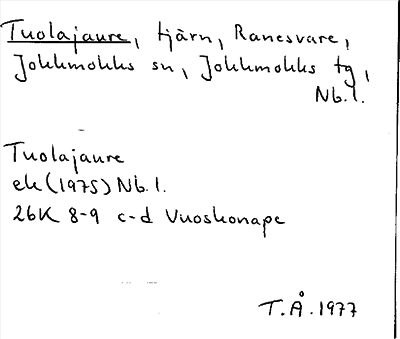 Tuolajaure, tjärn, Ranesvare,
Jokkmokks sn, Jokkmokks tg,
Nb.l.
Tuolajaure
ek (1975) Nb.l.
26K 8-9 c-d Vuoskonape
T.Å. 1977